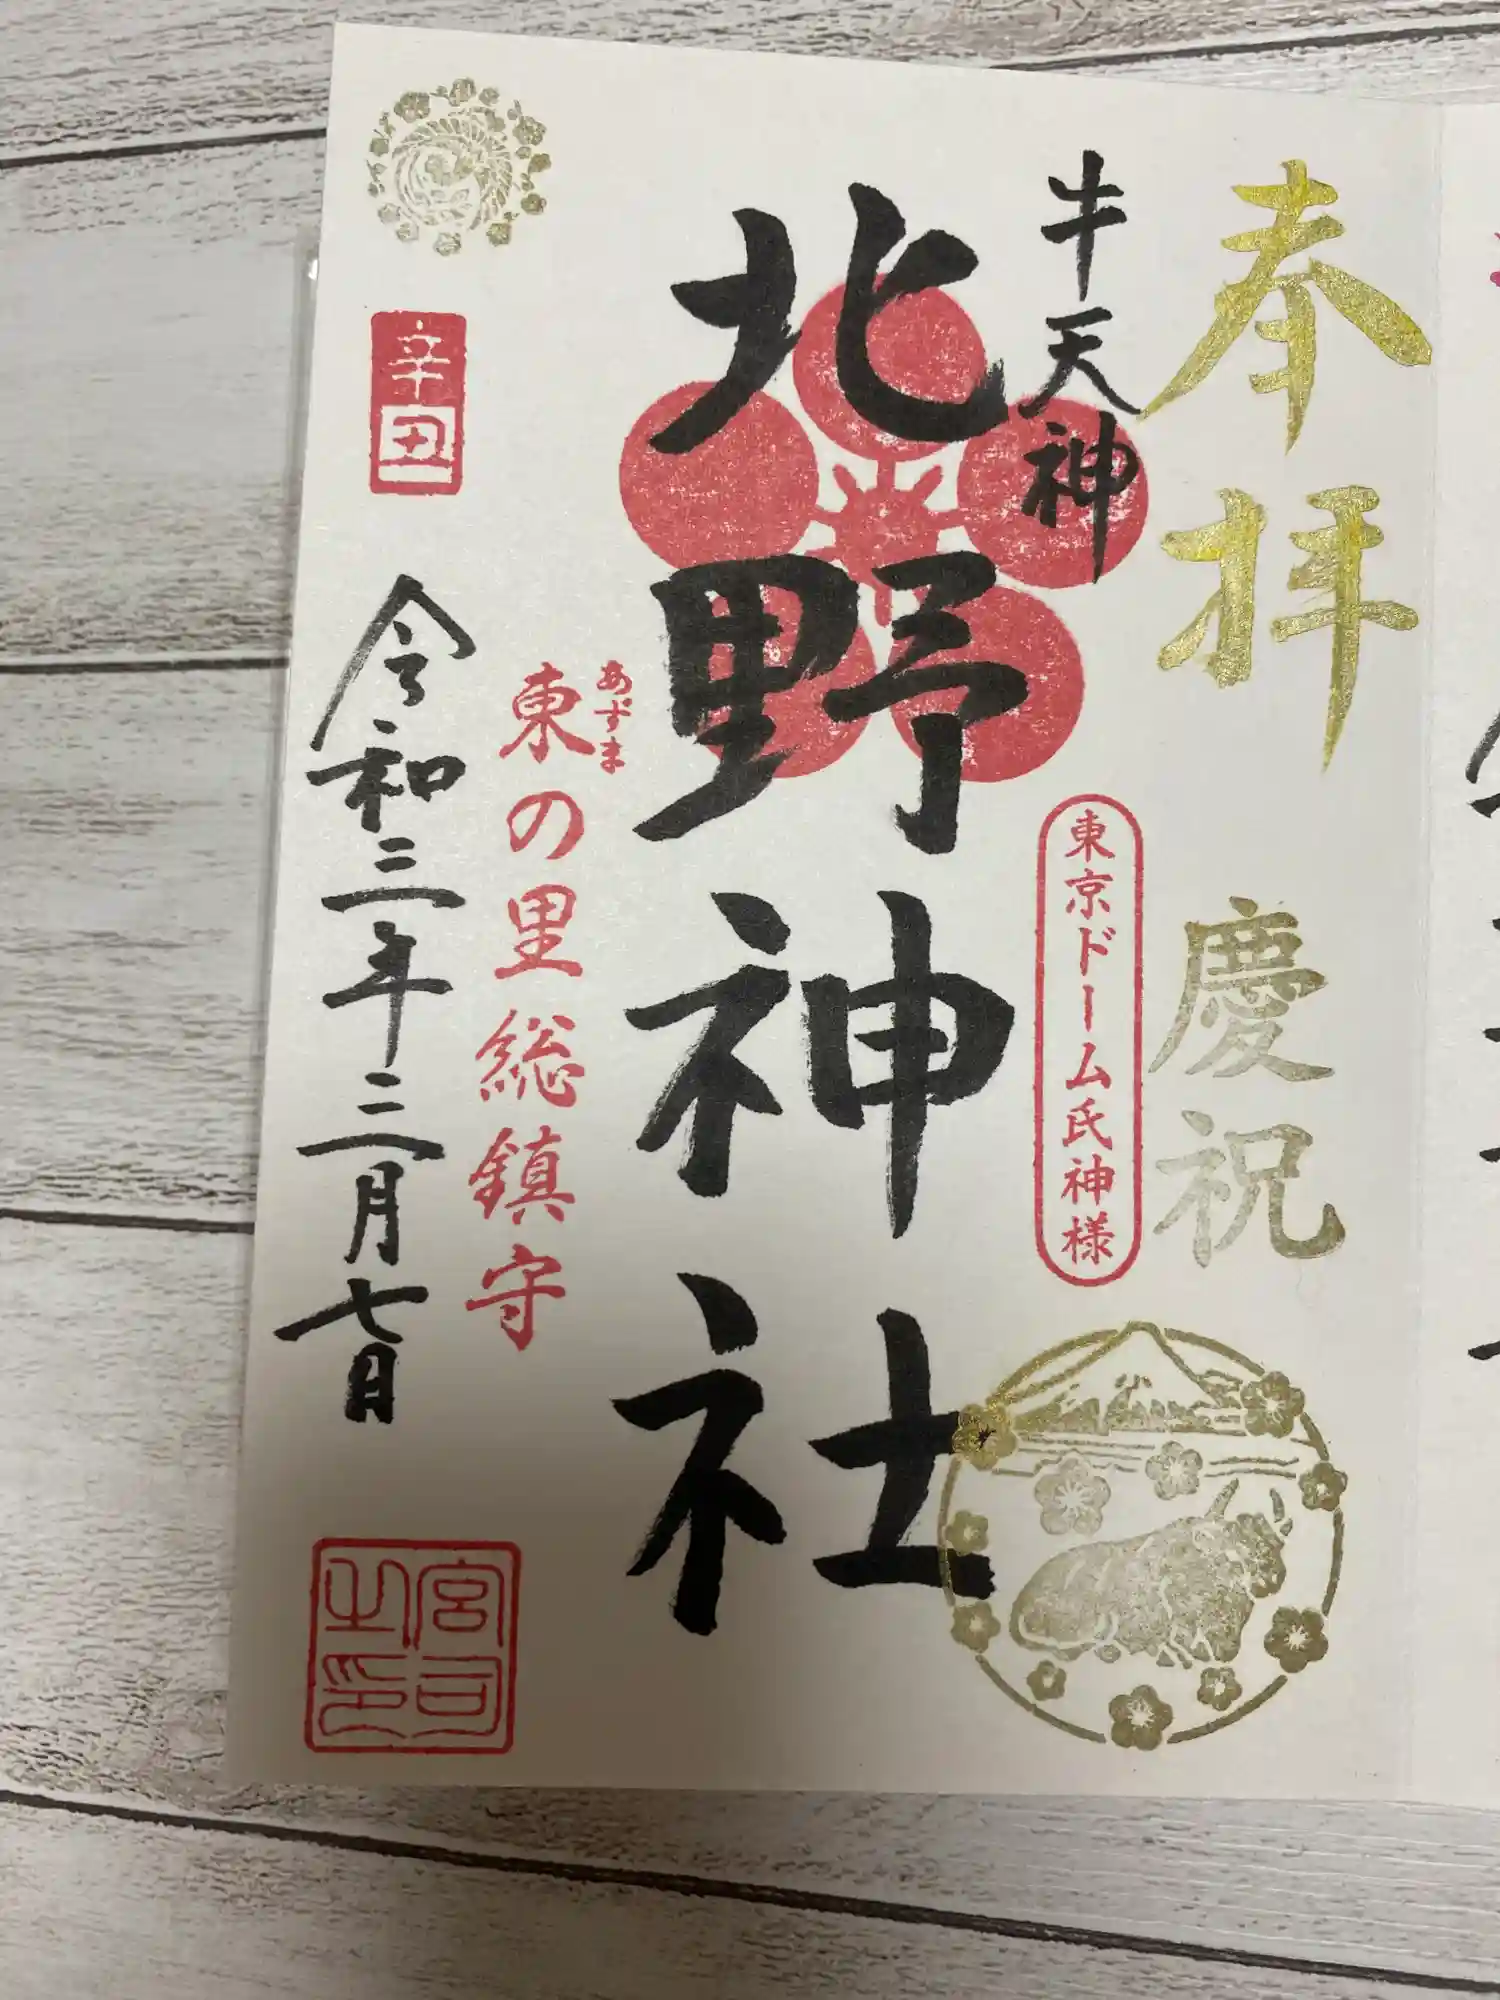 奉拝
慶祝
牛天神
東京ドーム氏神様
北野神社
あずま
東の里総鎮守
辛丑
令和三年二月七日
宮司
之印